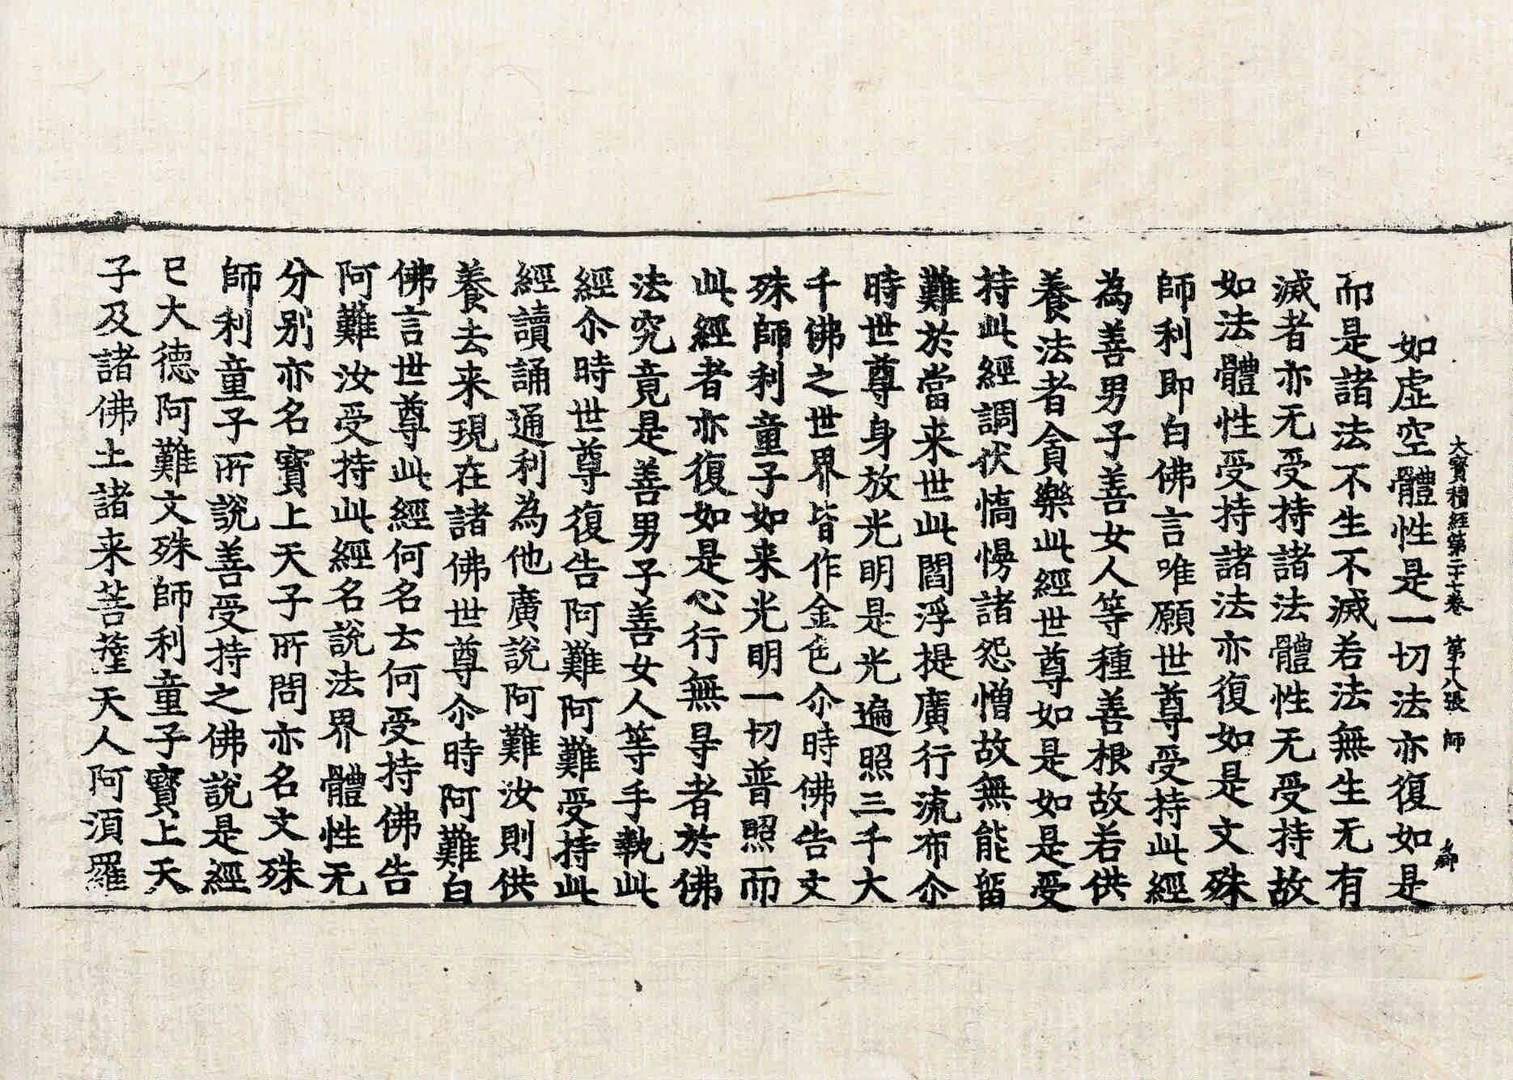 大寶積經第二十七卷 第十八張 師
如虛空體性是一切法亦復如是
而是諸法不生不滅若法無生无有
滅者亦无受持諸法體性无受持故
如法體性受持諸法亦復如是文殊
師利即白佛言唯願世尊受持此經
為善男子善女人等種善根故若供
養法者貪樂此經世尊如是如是受
持此經調伏憍慢諸怨憎故無能留
難於當来世此閻浮提廣行流布尒
時世尊身放光明是光遍照三千大
千佛之世界皆作金色尒時佛告文
殊師利童子如来光明一切普照而
此經者亦復如是心行無㝵者於佛
法究竟是善男子善女人等手執此
經尒時世尊復告阿難阿難受持此
經讀誦通利為他廣說阿難汝則供
養去来現在諸佛世尊尒時阿難白
佛言世尊此經何名云何受持佛告
阿難汝受持此經名說法界體性无
分別亦名寶上天子所問亦名文殊
師利童子所說善受持之佛說是經
已大德阿難文殊師利童子寶上天
子及諸佛土諸来菩薩天人阿須羅